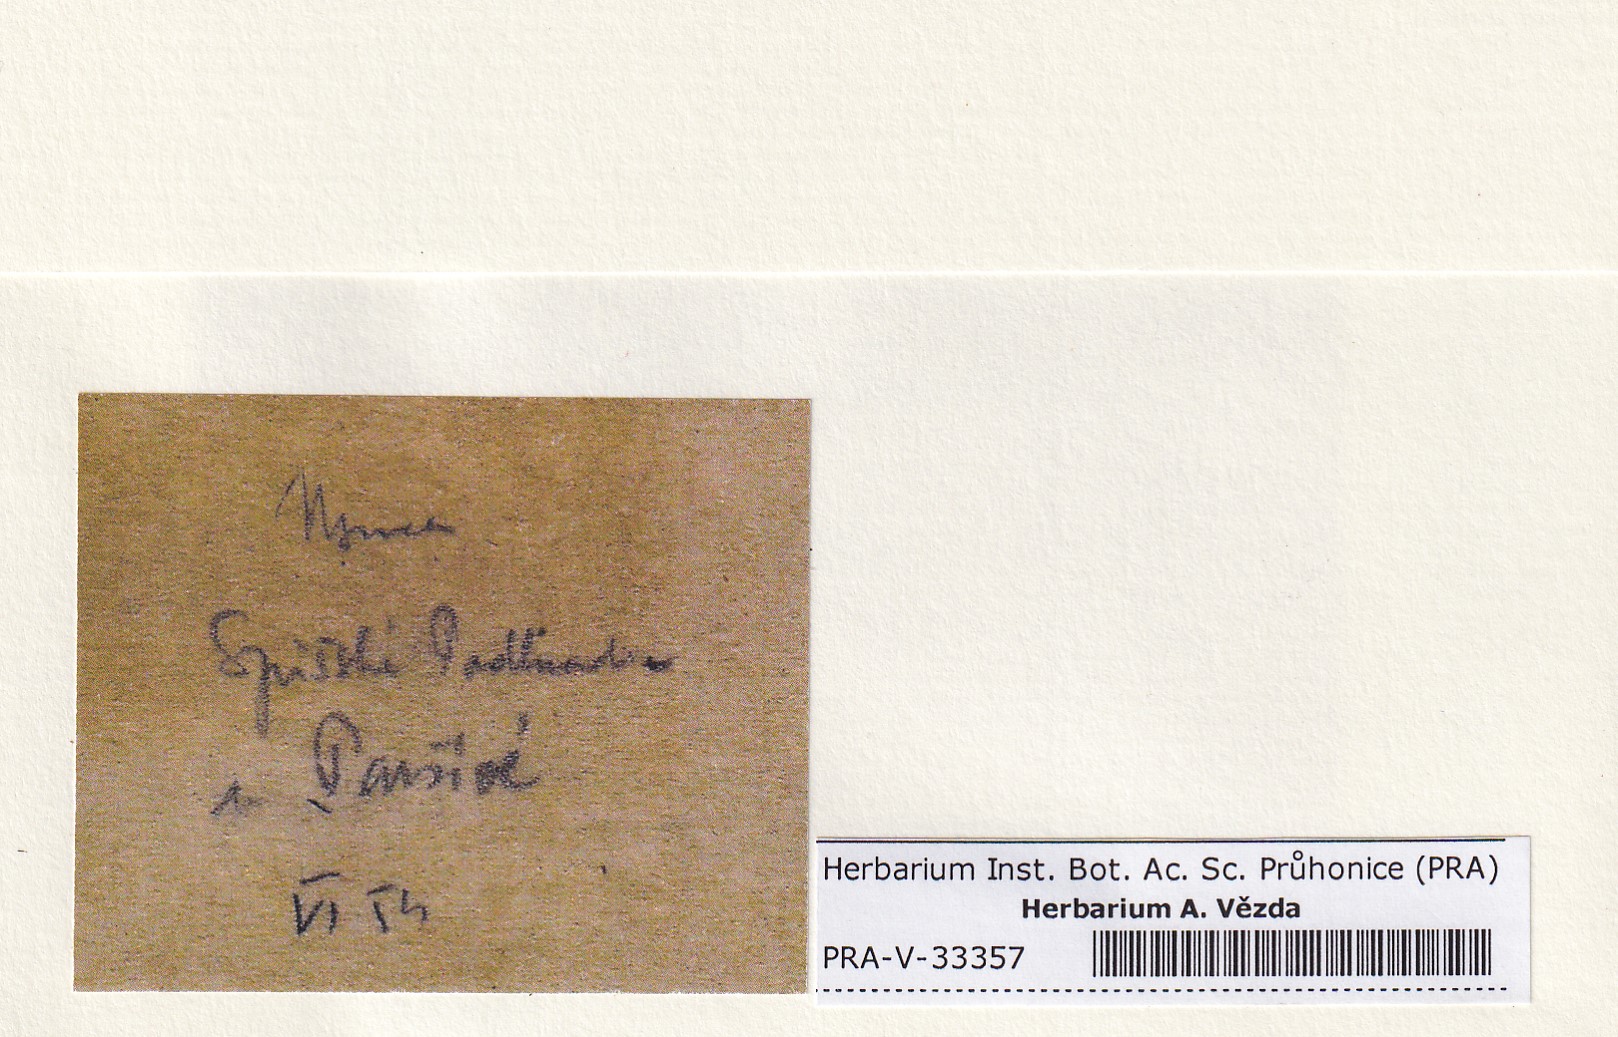 Spišské Podhrad
VI 54
Herbarium Inst. Bot. Ac. Sc. Průhonice (PRA)
Herbarium A. Vězda
PRA-V-33357